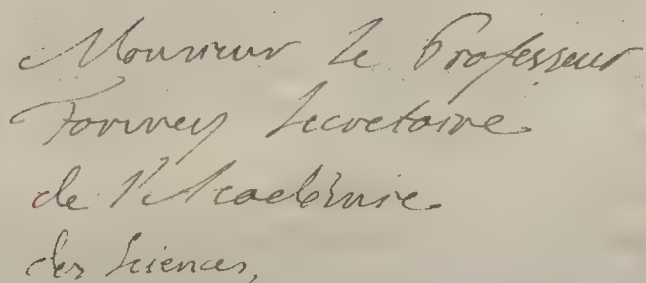 Monsieur le Professeur
Formey Secretaire
de l'Academie
des Sciences,